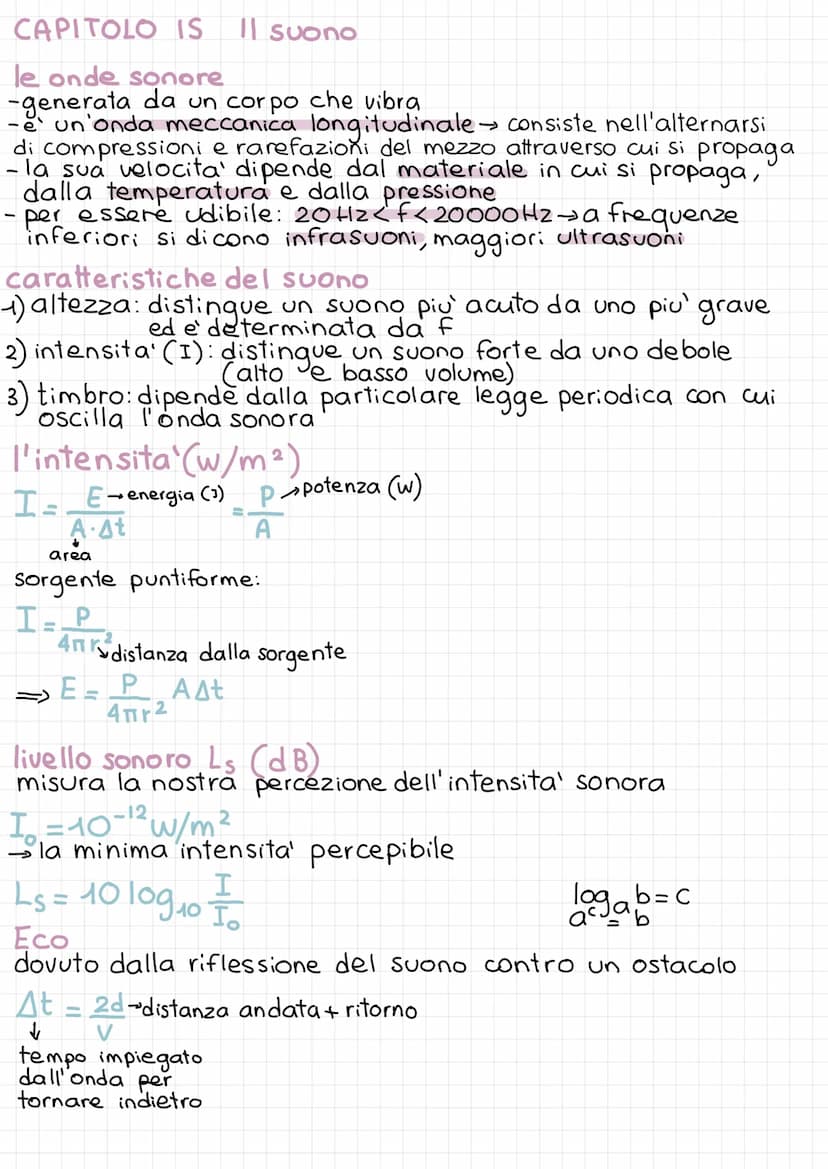 CAPITOLO 15 Il suono
le onde sonore
-generata da un corpo che vibra
-è un'onda meccanica longitudinale→ consiste nell'alternarsi
di compressioni e rarefazioni del mezzo attraverso cui si propaga
-la sua velocita' dipende dal materiale in cui si propaga,
dalla temperatura e dalla pressione
- per essere udibile: 20Hz<f<20000Hz→a frequenze
inferiori si dicono infrasuoni, maggiori ultrasuoni
caratteristiche del suono
1) altezza: distingue un suono piu' acuto da uno piu' grave
ed e' determinata da f
2) intensita' (I): distingue un suono forte da uno debole
(alto e basso volume)
3) timbro: dipende dalla particolare legge periodica con cui
oscilla l'onda sonora
l'intensita'(w/m²)
I = E/(A·Δt) = P/A
E→energia (J)
P→potenza (w)
↓
area
sorgente puntiforme:
I = P/(4πr²)
↘distanza dalla sorgente
⇒ E = P/(4πr²) · AΔt
livello sonoro Ls (dB)
misura la nostra percezione dell'intensita' sonora
I₀ =10⁻¹² w/m²
→ la minima intensita' percepibile
Ls = 10 log₁₀ I/I₀
logₐb = c
aᶜ = b
Eco
dovuto dalla riflessione del suono contro un ostacolo
Δt = 2d/v
2d→distanza andata + ritorno
↓
tempo impiegato
dall'onda per
tornare indietro